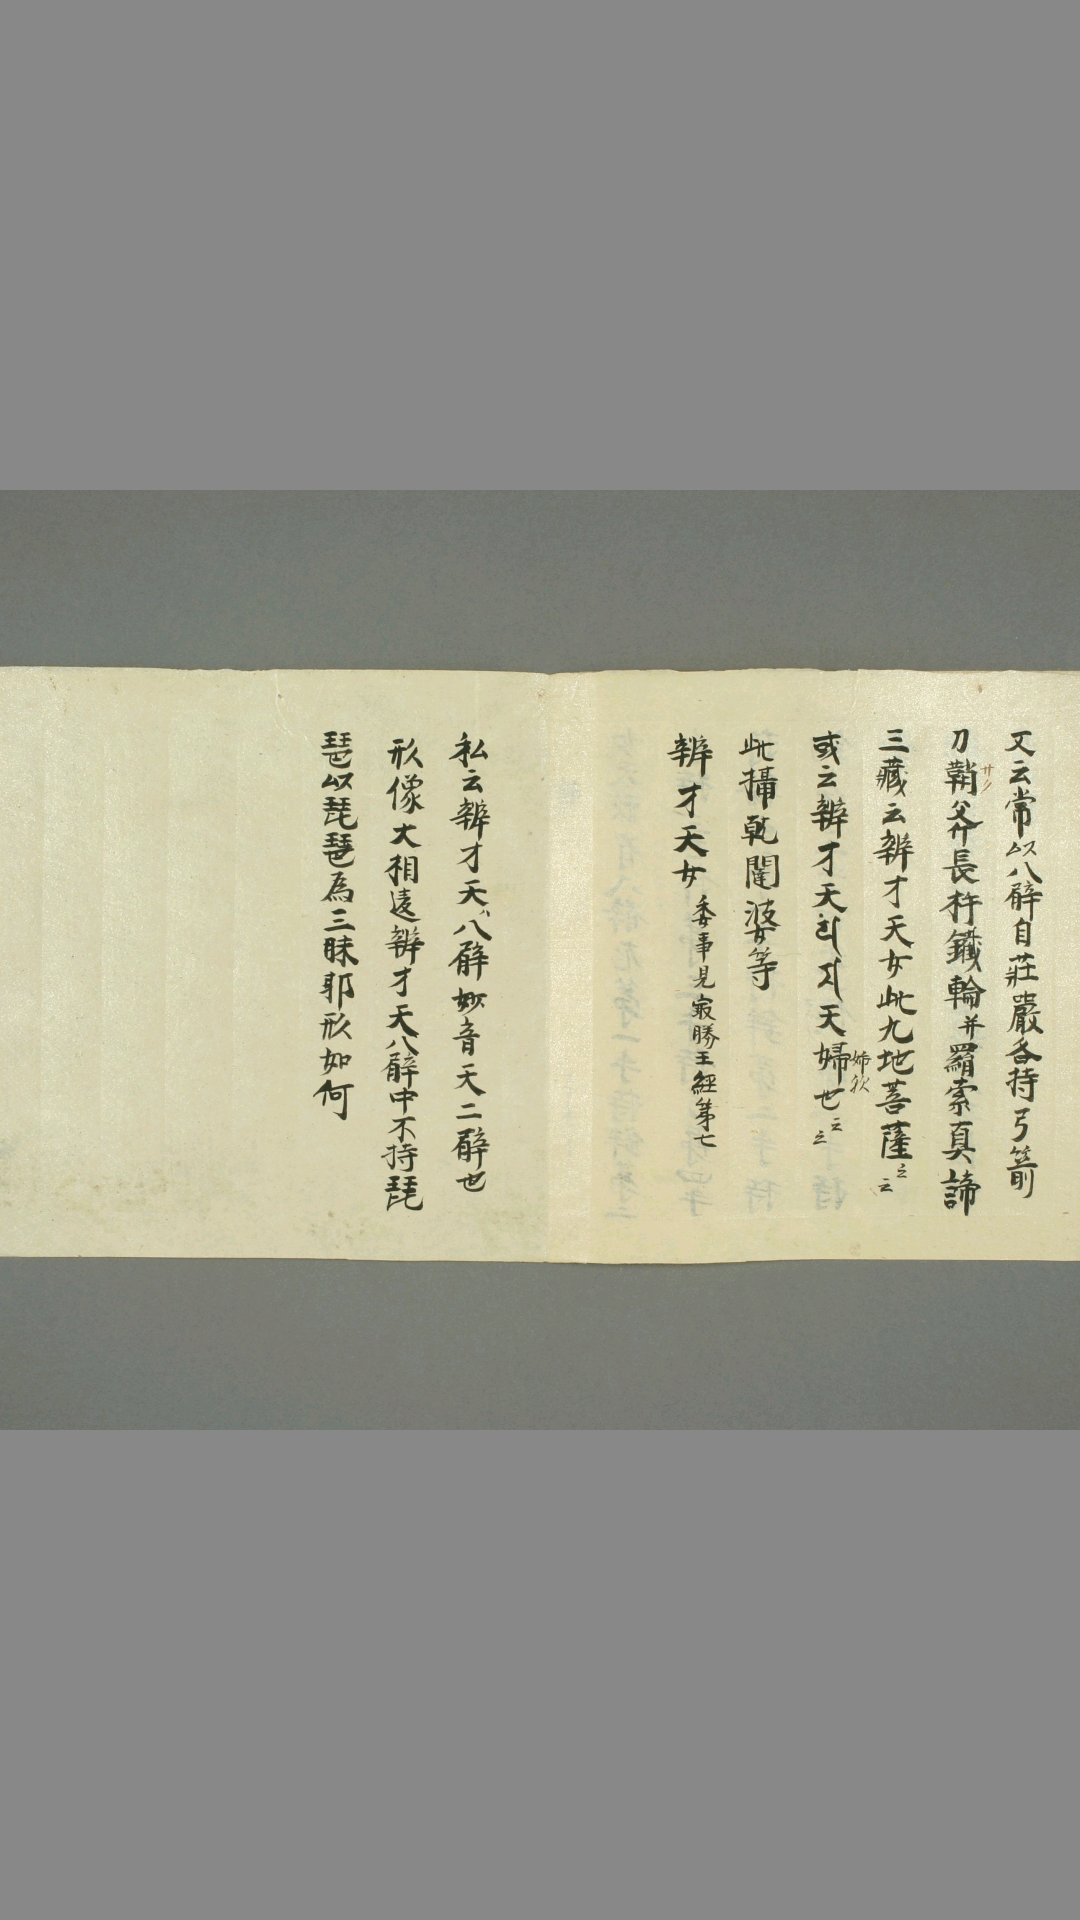 又云常以八臂自荘嚴各持弓箭
刀鞘斧長杵鐵輪并羂索真諦
サク
三蔵云辨才天女此九地菩薩云云
或云辨才天天婦也云云
姉歟
此攝乹闥婆等
辨才天女委事見㝡勝王經第七
私云辨才天ハ八臂妙音天二臂也
形像大相違辨才天八臂中不持琵
琶以琵琶為三昧耶形如何